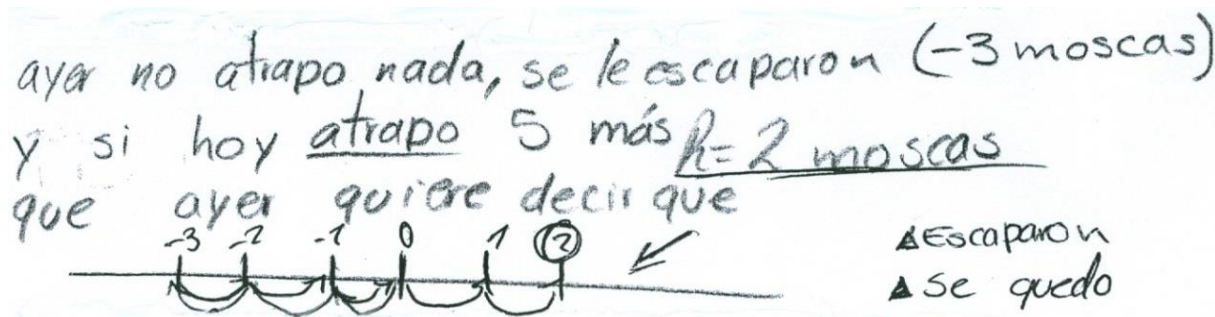 ayer no atrapo nada, se le escaparon (-3 moscas)
y si hoy atrapo 5 más R= 2 moscas
que ayer quiere decir que
-3 -2 -1 0 1 2
▲Escaparon
▲Se quedo